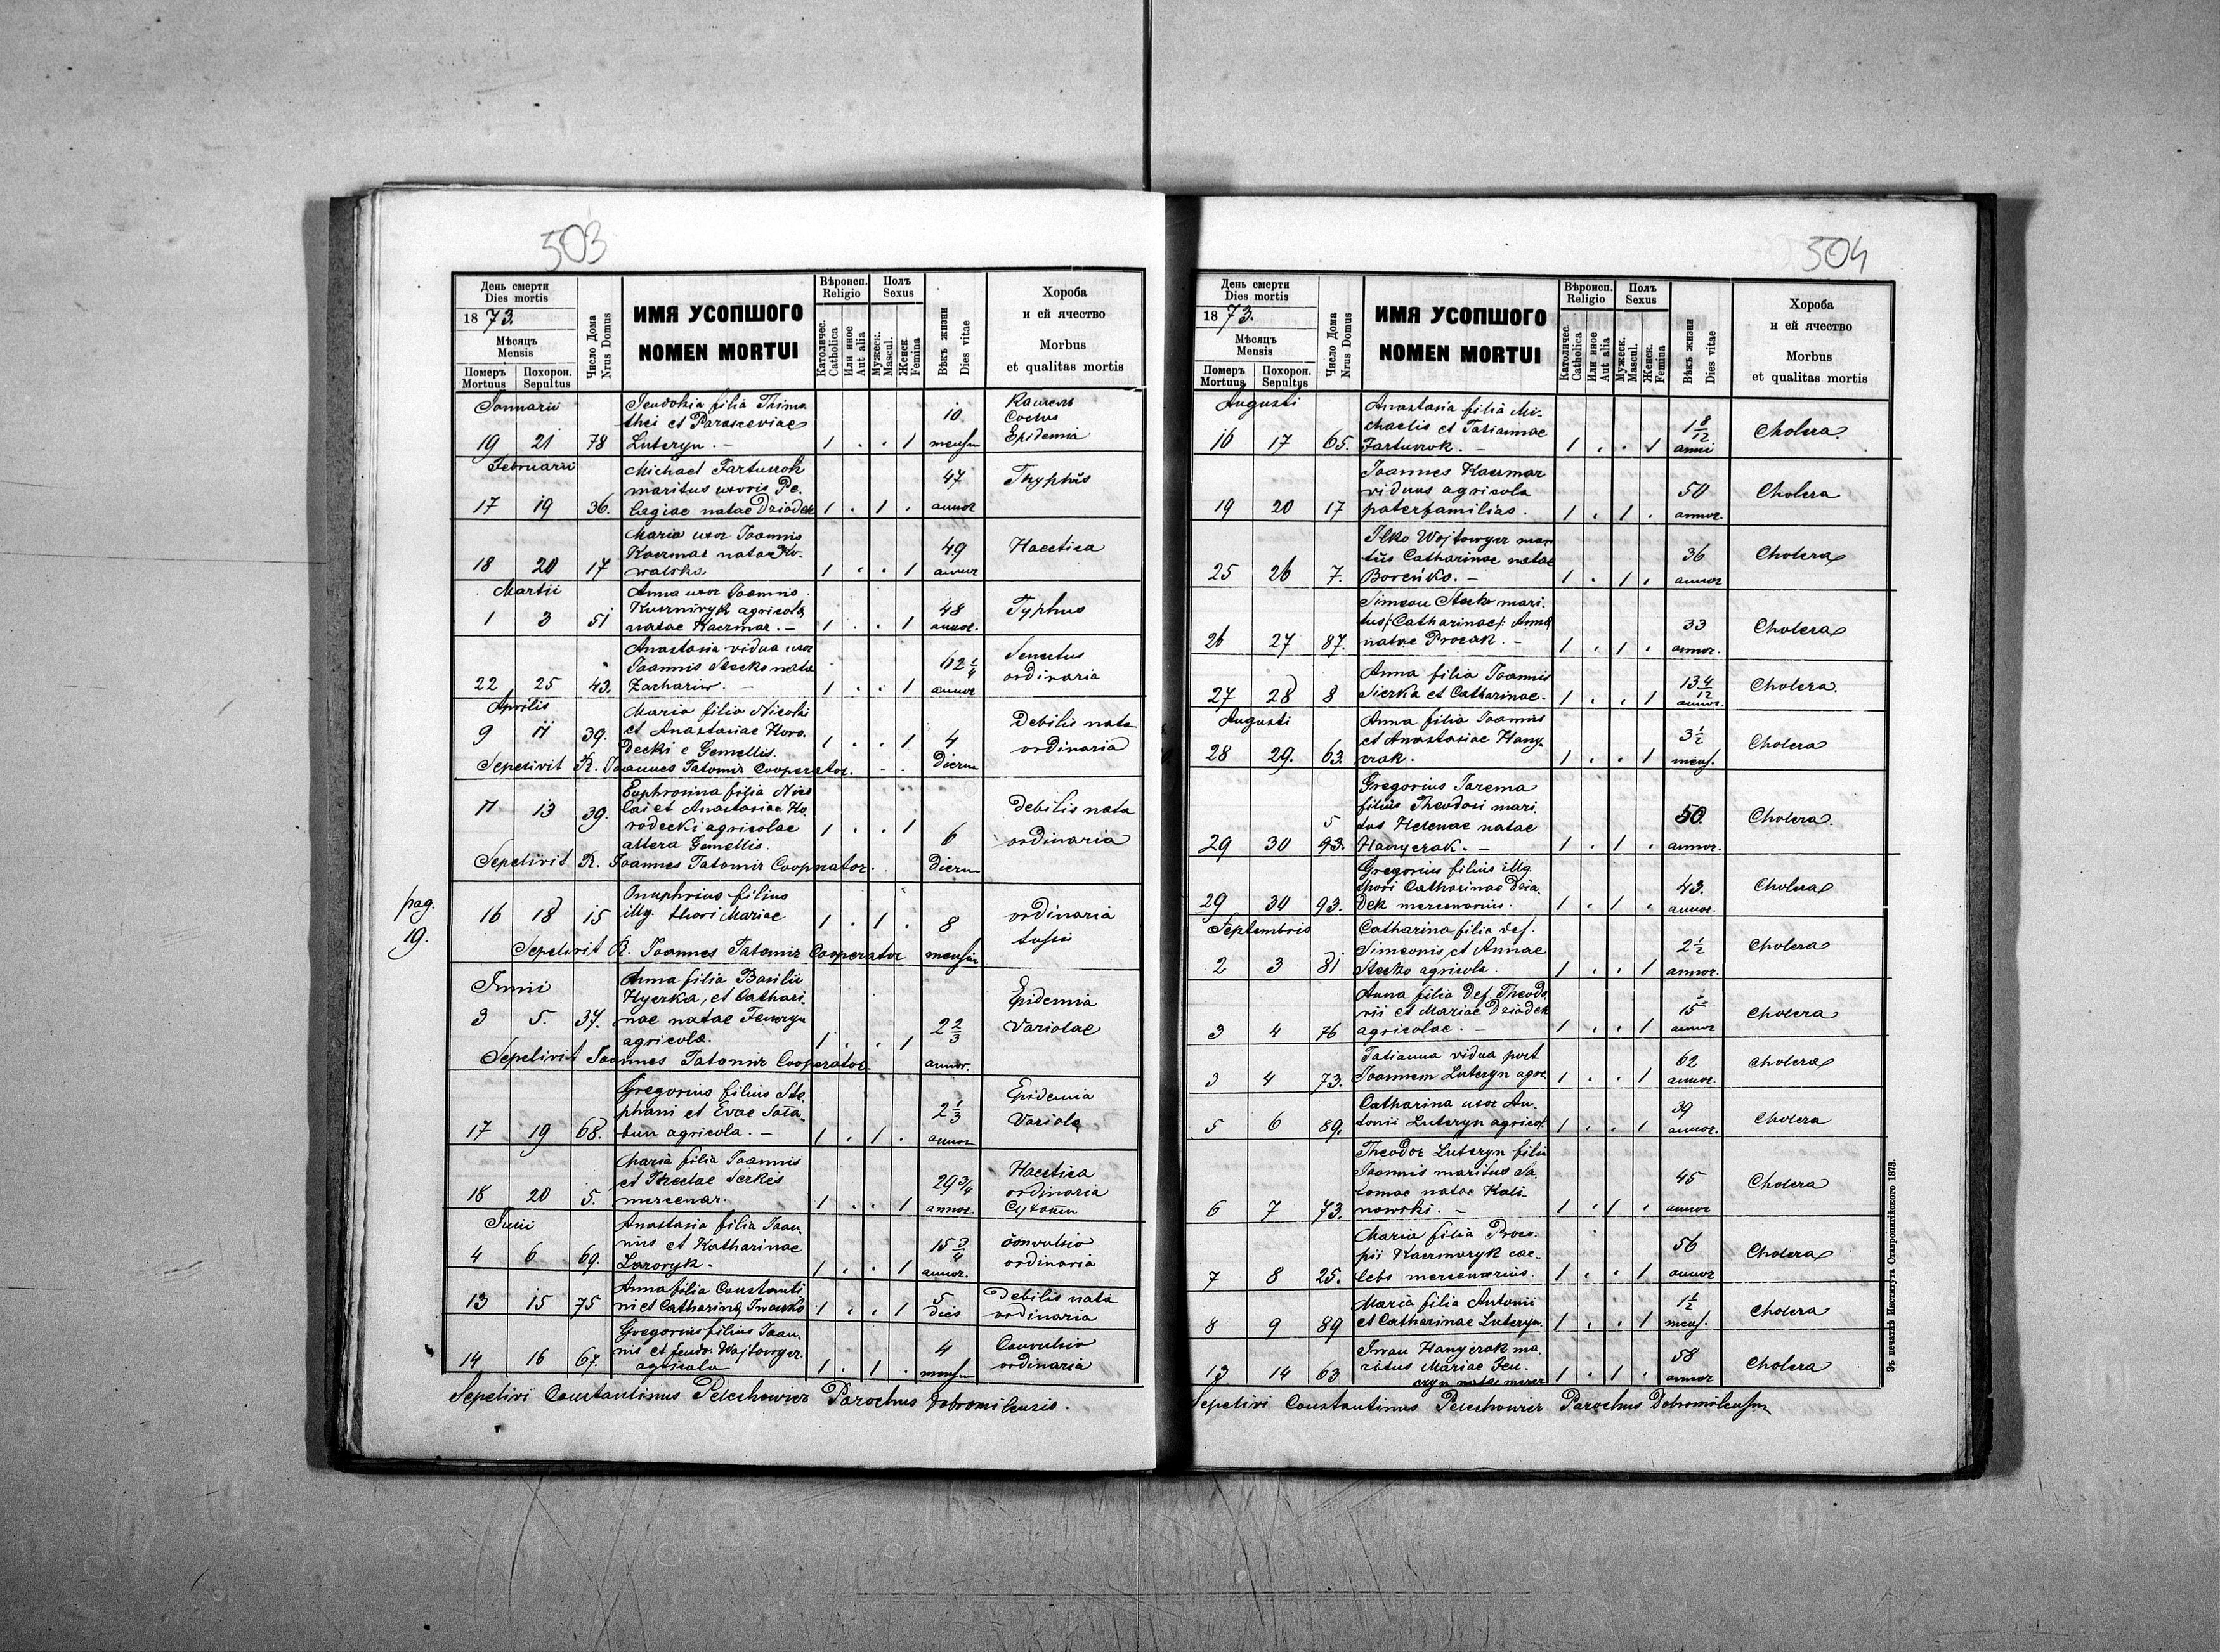 503
День смерти
Dies mortis
1873.
Мѣсяцъ
Mensis
Померъ Похорон.
Mortuus Sepultus
Число Дома
Nrus Domus
ИМЯ УСОПШОГО
NOMEN MORTUI
Вѣроисп.
Religio
Католичес.
Catholica
Или иное
Aut alia
Полъ
Sexus
Мужеск.
Mascul.
Женск.
Femina
Вѣкъ жизни
Dies vitae
Хороба
и ей ячество
Morbus
et qualitas mortis
Januarii
19 21 78
filia Thimo
thei et Parasceviae
Luteryn. –
1 . . 1
10
mensium
Epidemia
Februarii
17 19 36.
Michael
maritus uxoris Pe.
lagiae natae Dziadek
1 . 1 .
47
annor
Thyphus
18 20 17
Maria uxor Joannis
Kaczmar natae Ko.
walska
1 . . 1
49
annor
Haectica
Martii
1 3 51
Anna uxor Joannis
agricola
natae Kaczmar. –
1 . . 1
48
annor.
Typhus
22 25 43.
Anastasia vidua uxor
Joannis Stecko nata
Zachariw. –
1 . . 1
62 1/4
annor
Senectus
ordinaria
Aprilis
9 11 39.
Maria filia Nicolai
et Anastasiae Horo.
decki e Gemellis.
1 . . 1
4
Dierum
Debilis nata
ordinaria
Sepelivit R. Joannes Tatomir Cooperator.
11 13 39.
Euphrosina filia Nico
lai et Anastasiae Ho.
rodecki agricolae
altera Gemellis.
1 . . 1
6
Dierum
Debilis nata
ordinaria
Sepelivit R. Joannes Tatomir Cooperator.
pag.
19.
16 18 15
Onuphrius filius
illg. thori Mariae
1 . 1 .
8
mensium
ordinaria
tussis
Sepelivit R. Joannes Tatomir Cooperator
Junii
3 5. 37.
Anna filia Basilii
Hycrka, et Cathari.
nae natae Fenczyn
agricola.
1 . . 1
2 2/3
annor.
Epidemia
Variolae
Sepelivit Joannes Tatomir Cooperator
17 19 68.
Gregorius filius Ste.
phani et Evae Sata.
bun agricola. –
1 . 1 .
2 1/3
annor
Epidemia
Variola
18 20 5.
Maria filia Joannis
et Theclae Serkes
mercenar.
1 . . 1
29 3/4
annor.
Haectica
ordinaria
Juni
4 6 69.
Anastasia filia Joan
nis et Katharinae
Lazoryk.
1 . . 1
15 3/4
annor.
Convulsio
ordinaria
13 15 75
Anna filia Constanti
ni et Catharina Iwasko
1 . . 1
5
dies
Debilis nata
ordinaria
14 16 67.
Gregorius filius Joan.
nis et Wojtowyez.
agricola
1 . 1 .
4
mensium
Convulsio
ordinaria
Sepelivi Constantinus Pelechowicz Parochus Dobromilensis.
504
День смерти
Dies mortis
1873.
Мѣсяцъ
Mensis
Померъ Похорон.
Mortuus Sepultus
Число Дома
Nrus Domus
ИМЯ УСОПШОГО
NOMEN MORTUI
Вѣроисп.
Religio
Католичес.
Catholica
Или иное
Aut alia
Полъ
Sexus
Мужеск.
Mascul.
Женск.
Femina
Вѣкъ жизни
Dies vitae
Хороба
и ей ячество
Morbus
et qualitas mortis
Augusti
16 17 65.
Anastasia filia Mi-
chaelis et Tatiannae
1 . . 1
1 8/12
anni
Cholera.
19 20 17
Joannes Kaczmar
viduus agricola
paterfamilias.
1 . 1 .
50
annor.
Cholera
25 26 7.
Ilko Wojtowyez mari
tus Catharinae natae
Boreńko. –
1 . 1 .
36
annor
Cholera
26 27 87.
Simeon Stecko mari.
tus /:Catharinae:/ Anna
natae Procak. –
1 . 1 .
33
annor.
Cholera
27 28 8
Anna filia Joannis
Sierka et Catharinae.
1 . . 1
13 4/12
annor.
Cholera.
Augusti
28 29. 63.
Anna filia Joannis
et Anastasiae Hany.
czak.
1 . . 1
3 1/2
mens.
Cholera
29 30 93.
5
Gregorius Jarema
filius Theodosi mari
tus Helenae natae
Hanyczak. –
1 . 1 .
50.
annor.
Cholera.
29 30 93.
Gregorius filius illg.
thori Catharinae Dzia.
dek mercenarius.
1 . 1 .
43.
annor.
Cholera
Septembris
2 3 81
Catharina filia def.
Simeonis et Annae
Stecko agricola.
1 . . 1
2 1/2
annor.
Cholera
3 4 76
Anna filia Def. Theodo
rii et Mariae Dziadek
agricolae. –
1 . . 1
15
annor
Cholera
3 4 73.
Tatianna vidua post
Joannem Luteryn agri.
1 . . 1
62
annor.
Cholera
5 6 89.
Catharina uxor An.
tonii Luteryn agricol.
1 . . 1
39
annor.
Cholera
6 7 73.
Theodor Luteryn filii
Joannis maritus Sa
lomae natae Kali
nowski. –
1 . 1 .
45
annor
Cholera
7 8 25.
Maria filia Proco.
pii Kaczmaryk cae-
lebs mercenarius.
1 . . 1
56
annor
Cholera
8 9 89
Maria filia Antonii
et Catharinae Luteryn.
1 . . 1
1 1/2
mens.
Cholera
13 14 63
Iwan Hanyczak ma.
ritus Mariae Fen.
czyn natae mercer
1 . 1 .
58
annor
Cholera
Sepelivi Constantinus Pelechowicz Parochus Dobromilensis
Зъ печатнѣ Института Ставропигійского 1873.